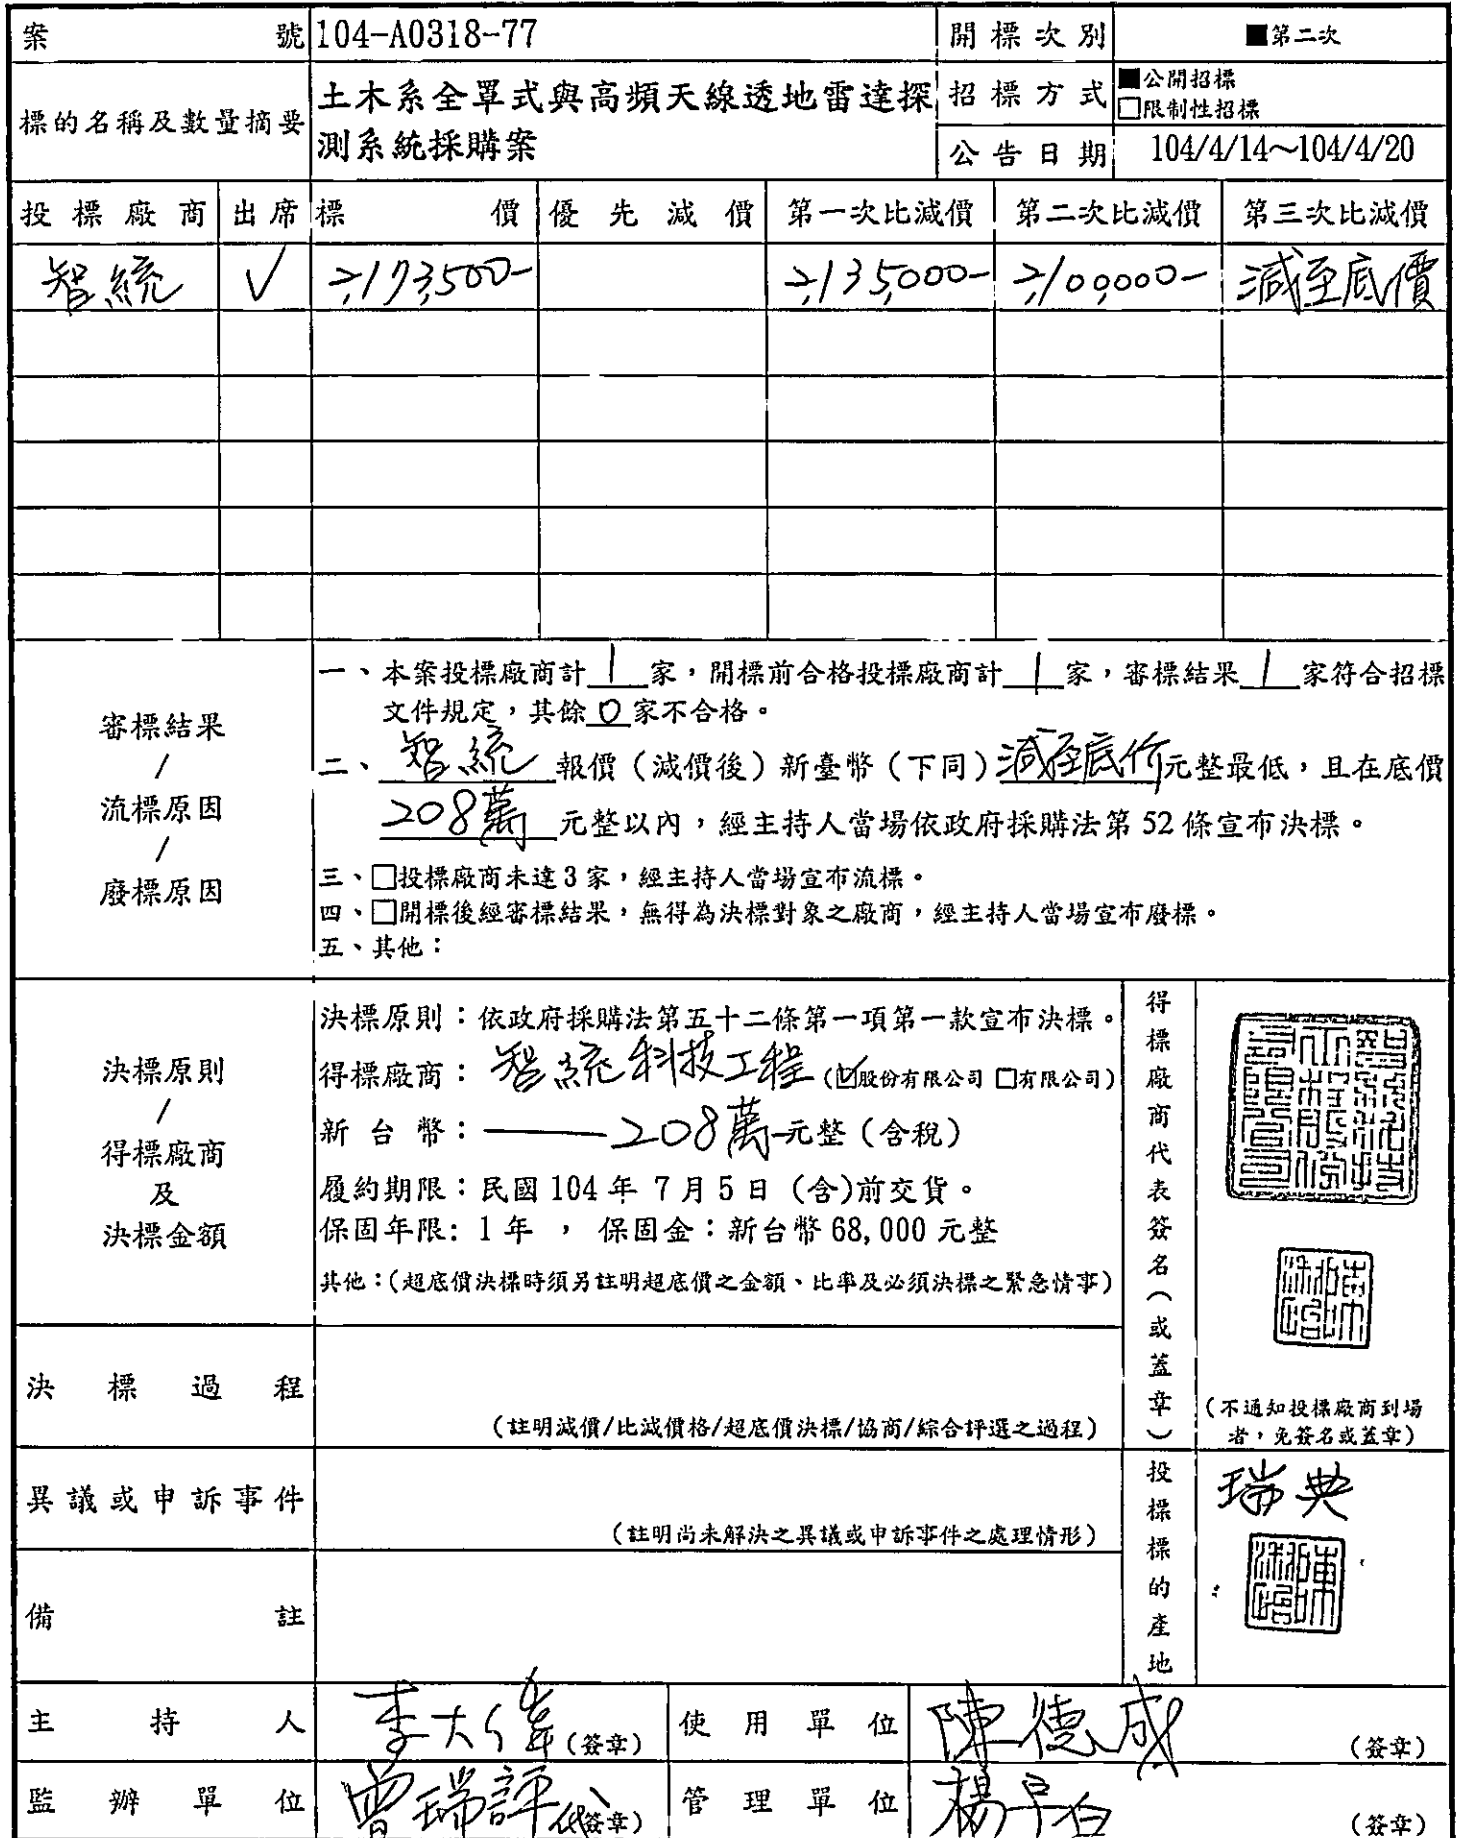 案號 104-A0318-77 開標次別 ■第二次
標的名稱及數量摘要 土木系全罩式與高頻天線透地雷達探
測系統採購案
招標方式 ■公開招標
□限制性招標
公告日期 104/4/14~104/4/20
投標廠商 出席 標價 優先減價 第一次比減價 第二次比減價 第三次比減價
智統 ✓ 2,173,500- 2,135,000- 2,100,000- 減至底價
審標結果
/
流標原因
/
廢標原因
一、本案投標廠商計 1 家,開標前合格投標廠商計 1 家,審標結果 1 家符合招標
文件規定,其餘 0 家不合格。
二、智統 報價(減價後)新臺幣(下同)減至底价元整最低,且在底價
208萬 元整以內,經主持人當場依政府採購法第 52 條宣布決標。
三、□投標廠商未達 3 家,經主持人當場宣布流標。
四、□開標後經審標結果,無得為決標對象之廠商,經主持人當場宣布廢標。
五、其他:
決標原則
/
得標廠商
及
決標金額
決標原則:依政府採購法第五十二條第一項第一款宣布決標。
得標廠商:智統科技工程(☑股份有限公司 □有限公司)
新台幣:——208萬元整(含稅)
履約期限:民國 104 年 7 月 5 日 (含)前交貨。
保固年限: 1 年 , 保固金:新台幣 68,000 元整
其他:(超底價決標時須另註明超底價之金額、比率及必須決標之緊急情事)
得標廠商代表簽名(或蓋章)
(不通知投標廠商到場
者,免簽名或蓋章)
決標過程
(註明減價/比減價格/超底價決標/協商/綜合評選之過程)
異議或申訴事件
(註明尚未解決之異議或申訴事件之處理情形)
備註
投標標的產地
瑞典
主持人 李大偉 (簽章) 使用單位 陳德成 (簽章)
監辦單位 曾瑞評代 (簽章) 管理單位 (簽章)